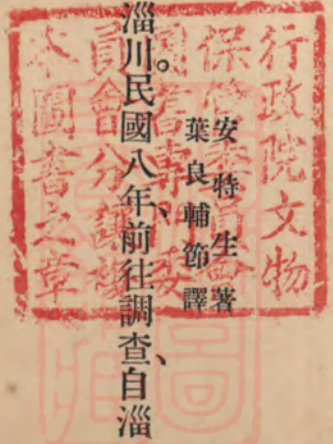 行政院文物
保管委員會
圖書專門委
員會分
圖書之章
安特生著
葉良輔節譯
淄川。民國八年、前往調查、自淄